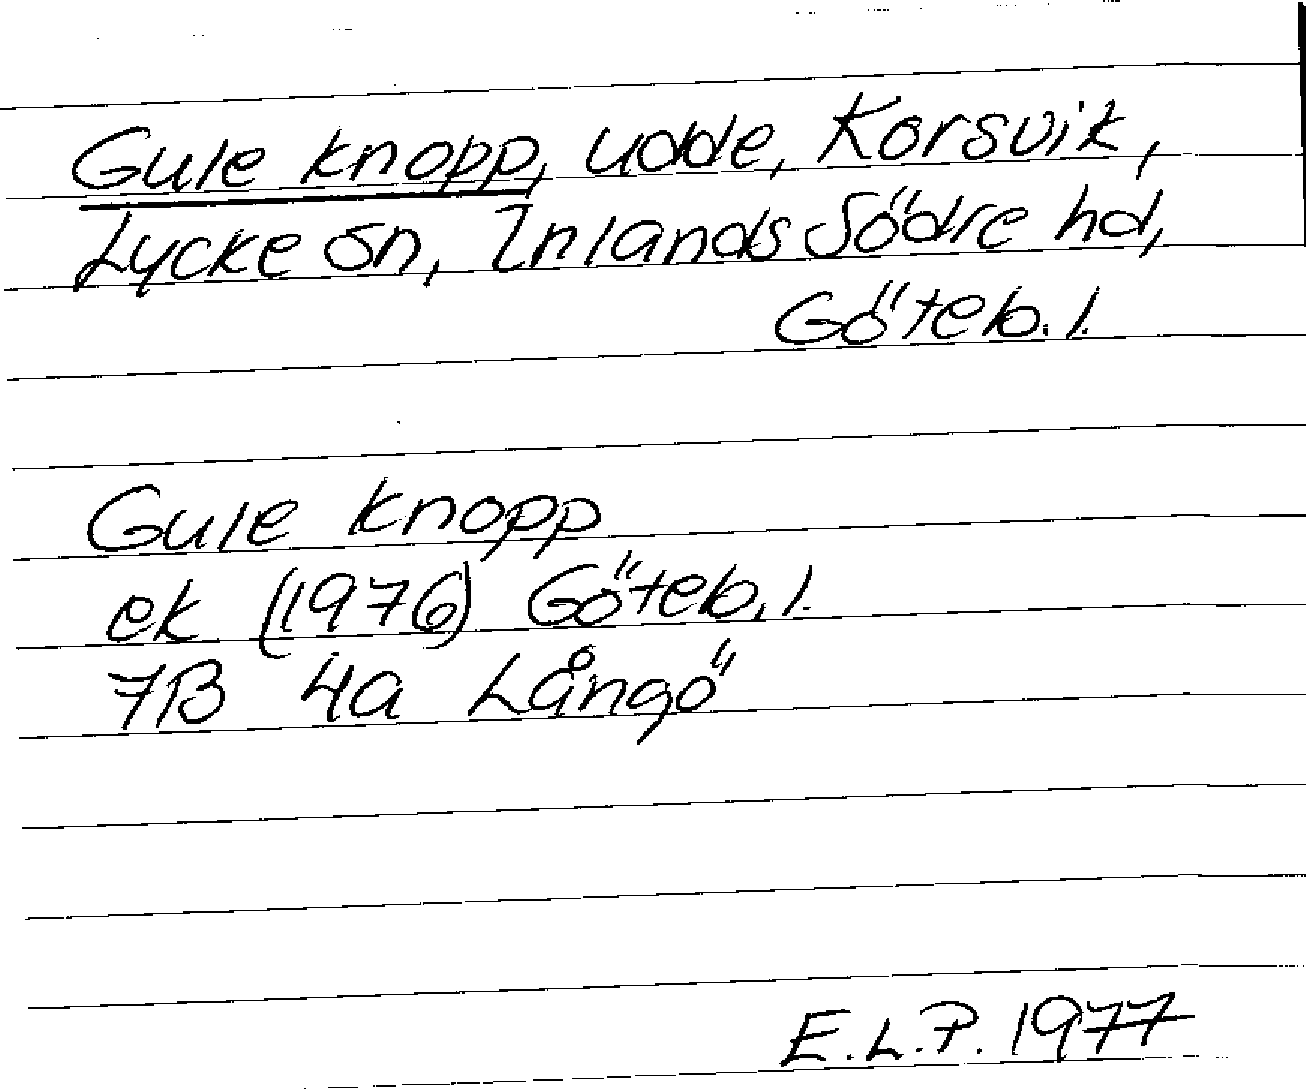 Gule knopp, udde, Korsvik,
Lycke sn, Inlands Södre hd,
Göteb. l.
Gule knopp
ek (1976) Göteb. l.
7B 4a Långö
E.L.P. 1977